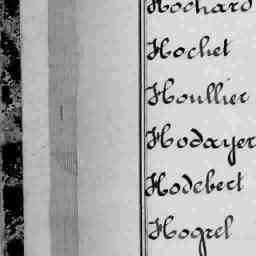 Hochard
Hochet
Houllier
Hodayer
Hodebert
Hogrel